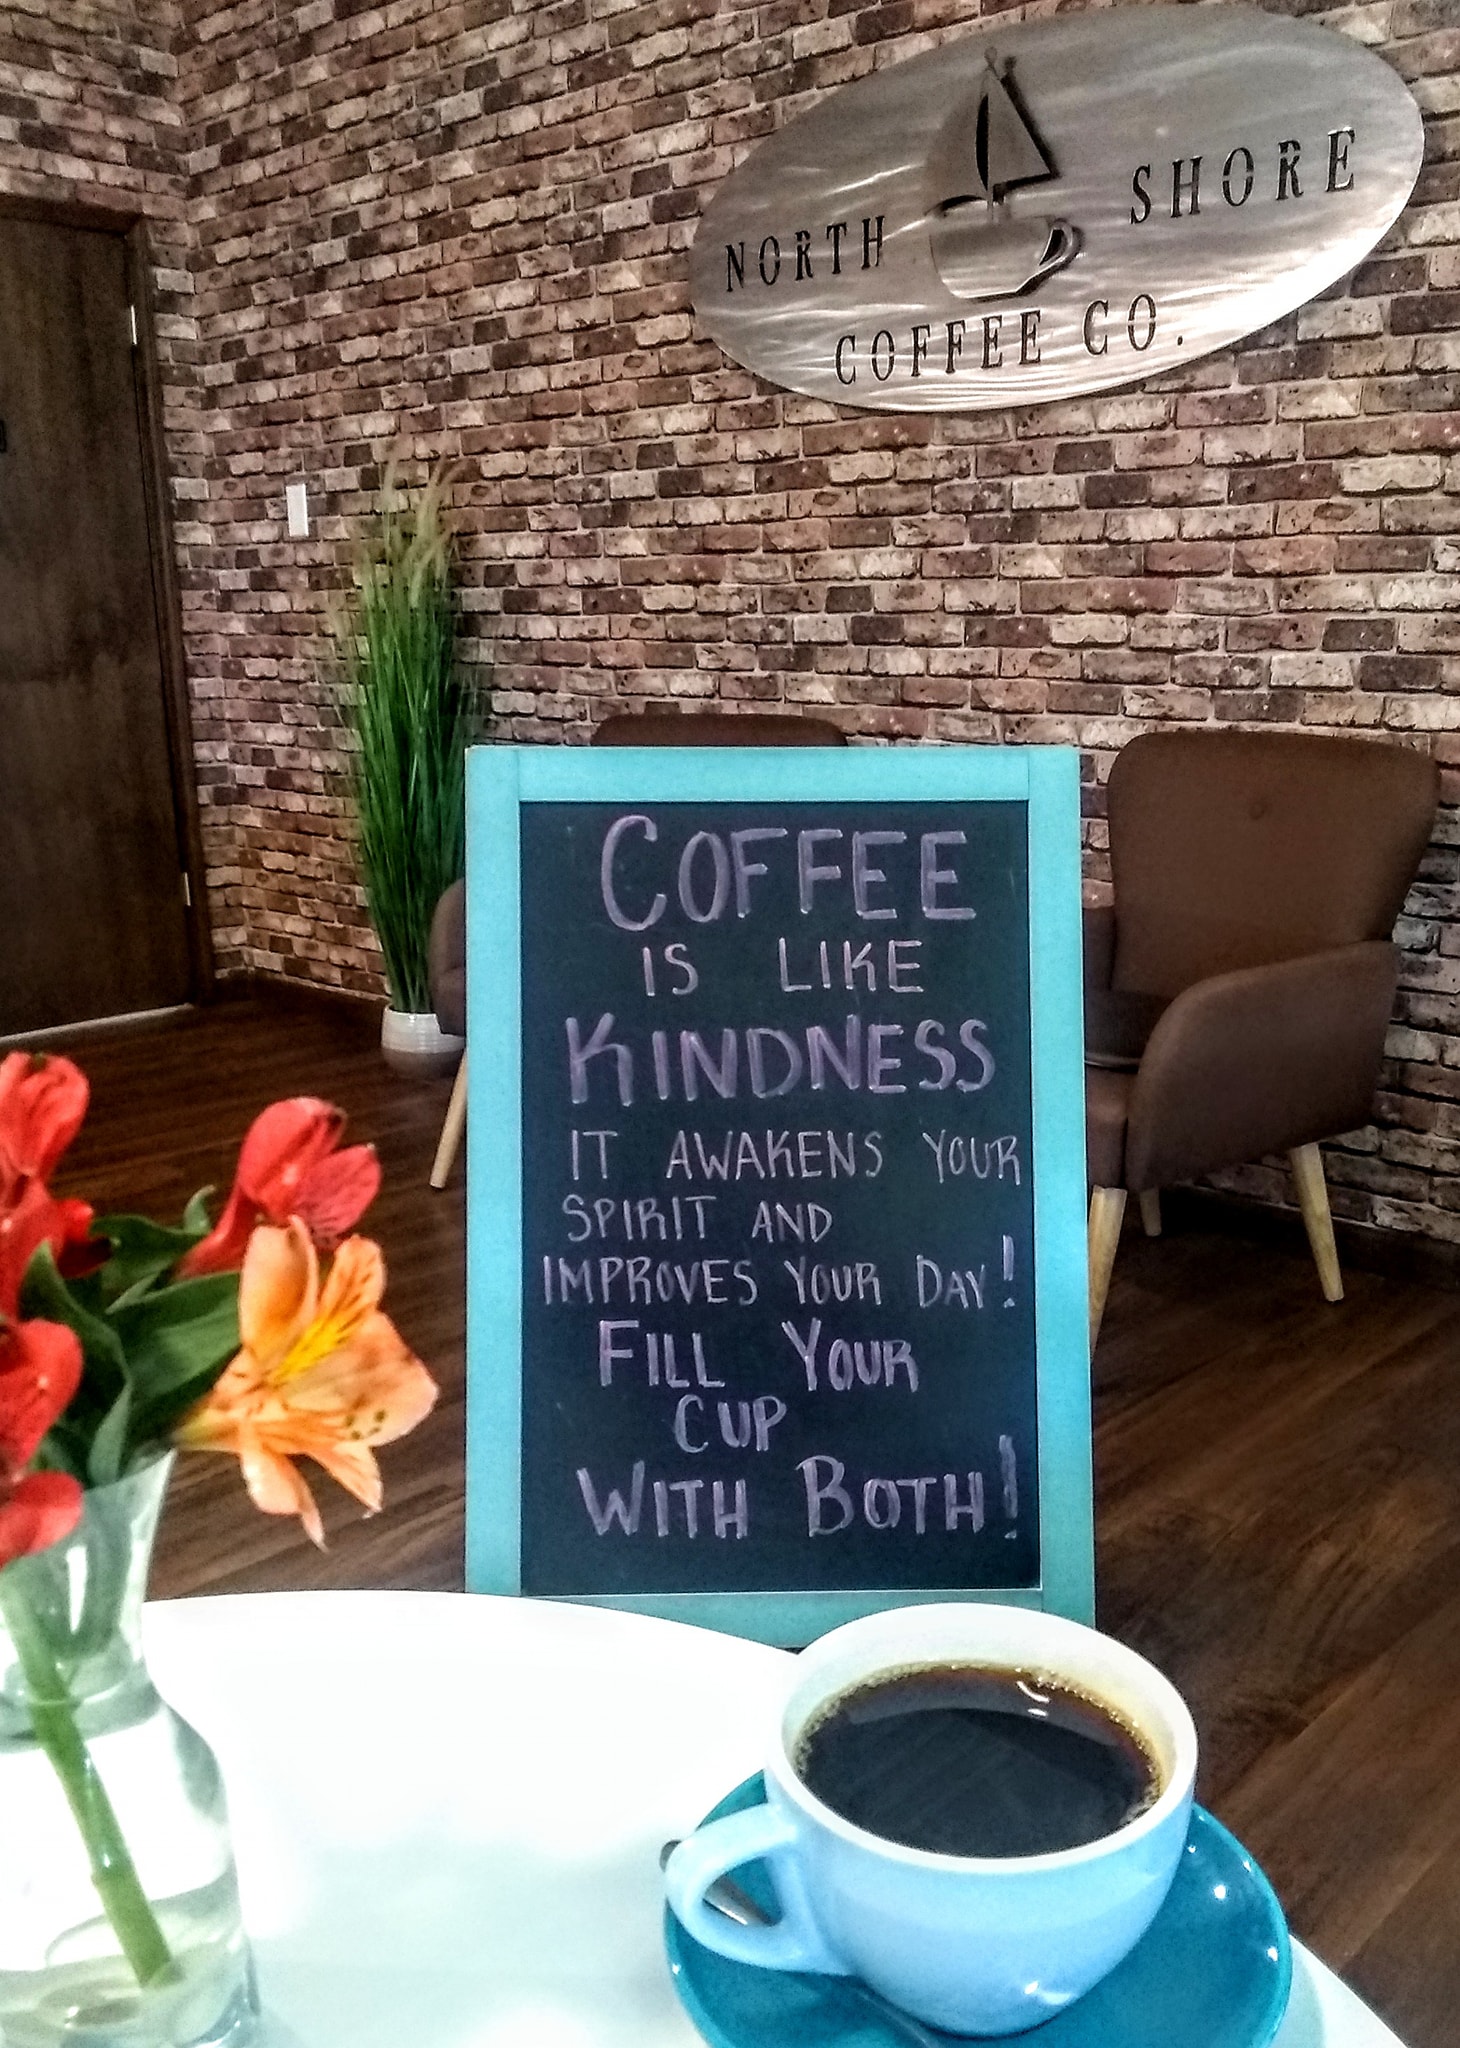 NORTH SHORE
COFFEE CO.
COFFEE
IS LIKE
KINDNESS
IT AWAKENS YOUR
SPIRIT AND
IMPROVES YOUR DAY!
FILL YOUR
CUP
WITH BOTH!